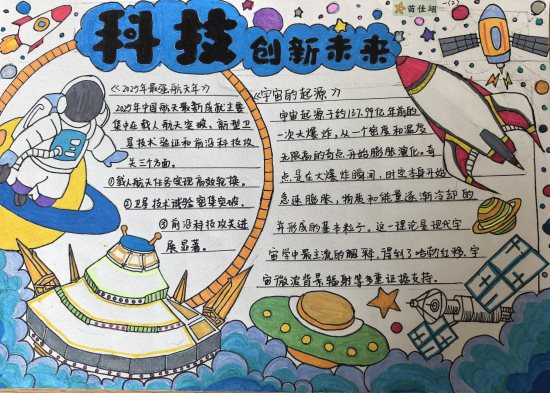 苗佳翊 一(2)
科技创新未来
《2025年最强航天年》
2025年中国航天最新成就主要
集中在载人航天突破、新型卫
星技术验证和前沿科技攻
关三个方面。
①载人航天任务实现高效轮换。
②卫星技术试验密集突破。
③前沿科技攻关进
展显著。
《宇宙的起源》
宇宙起源于约137.99亿年前的
一次大爆炸,从一个密度和温度
无限高的奇点开始膨胀演化。奇
点是在大爆炸瞬间,时空本身开始
急速膨胀,物质和能量逐渐冷却的
并形成的基本粒子。这一理论是现代宇
宙学中最主流的解释,得到了哈勃红移、宇
宙微波背景辐射等多重证据支持。